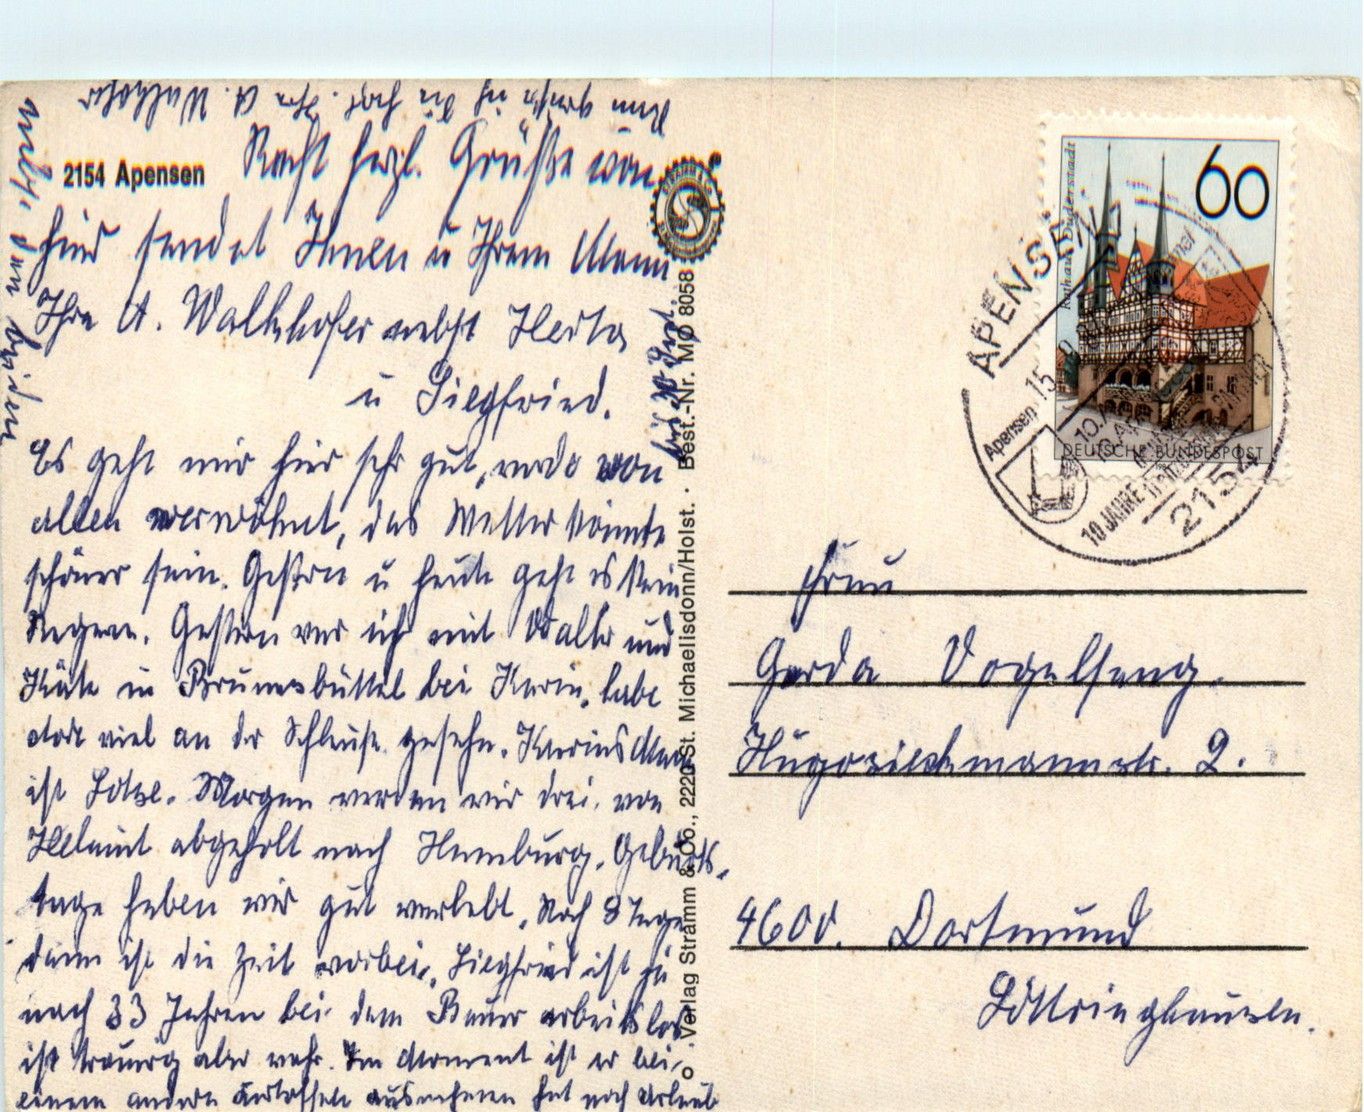 2154 Apensen
Recht herzl. Grüße von
hier sendet Ihnen u Ihrem Mann
Ihre A. Walkhofer nebst Herta
u Siegfried.
Es geht mir hier sehr gut, werde von
allen verwöhnt, das Wetter könnte
schöner sein. Gestern u heute geht es kein
Regen. Gestern war ich mit Walter und
Käte in Brunsbüttel bei Karin, habe
dort viel an der Schleuse gesehn. Karins Mann
ist Lotse. Morgen werden wir drei von
Helmut abgeholt nach Hamburg. Geburts-
tage haben wir gut verlebt. Noch 8 Tage
dann ist die Zeit vorbei. Siegfried ist ja
nach 33 Jahren bei dem Bauer arbeitslos
ist traurig aber wahr. Im Moment ist er bei
einem andern Kartoffeln ausnehmen hat noch Urlaub
nebst den beiden
Ihre A. Walkhofer
Verlag Stramm & Co., 2220 St. Michaelisdonn/Holst. · Best.-Nr. MO 8058
60
Rathaus Duderstadt
DEUTSCHE BUNDESPOST
APENSEN
Apensen
10 JAHRE
2154
Frau
Gerda Vogelsang.
Hugosickmannstr. 2.
4600. Dortmund
Löttringhausen.